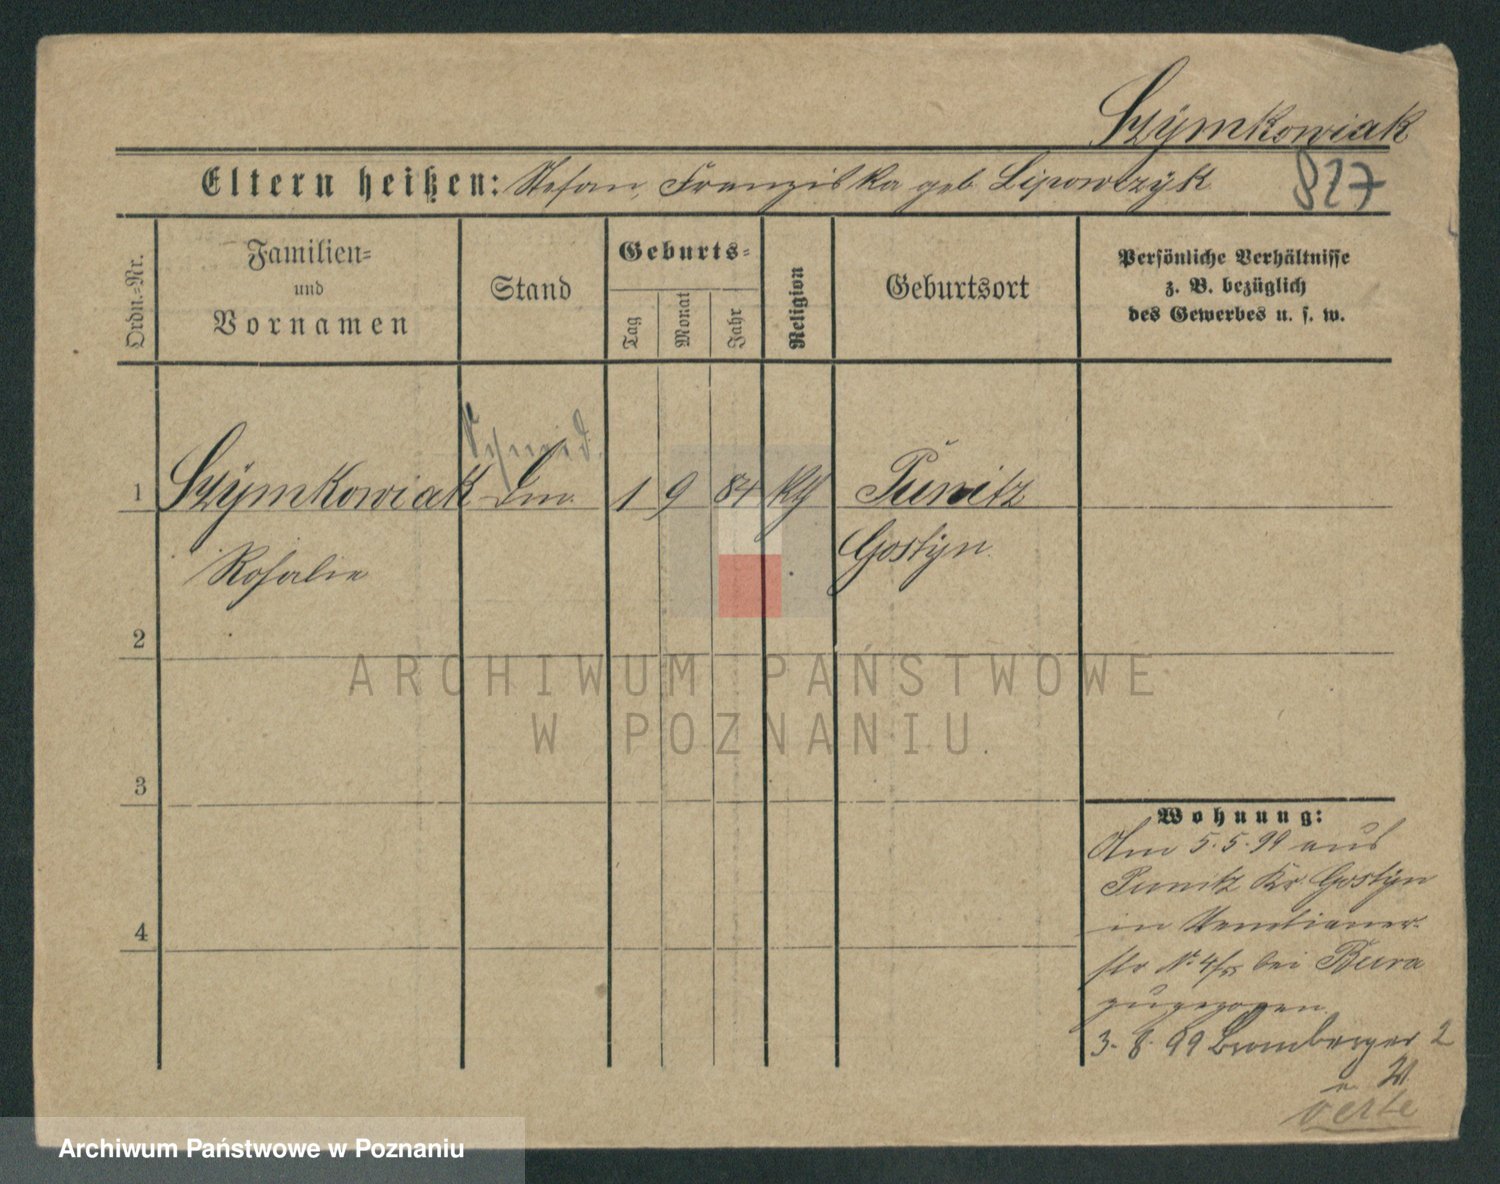 Szymkowiak
Eltern heißen: Stefan, Franziska geb. Lipowczyk
827
Ordn.-Nr.
Familien-
und
Vornamen
Stand
Geburts-
Tag
Monat
Jahr
Religion
Geburtsort
Persönliche Verhältnisse
z. B. bezüglich
des Gewerbes u. s. w.
Schneid.
1 Szymkowiak 1 9 84 Punitz
Rosalie Gostyn
2
ARCHIWUM PAŃSTWOWE
W POZNANIU
3
Wohnung:
Am 5.5.99 aus
Punitz Kr Gostyn
in Venetianer-
str No 4/ bei Bura
zugezogen
4
3. 8. 99 Bromberger 2
Archiwum Państwowe w Poznaniu